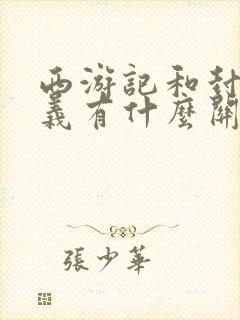 西游記和封
義有什麼關
張少華